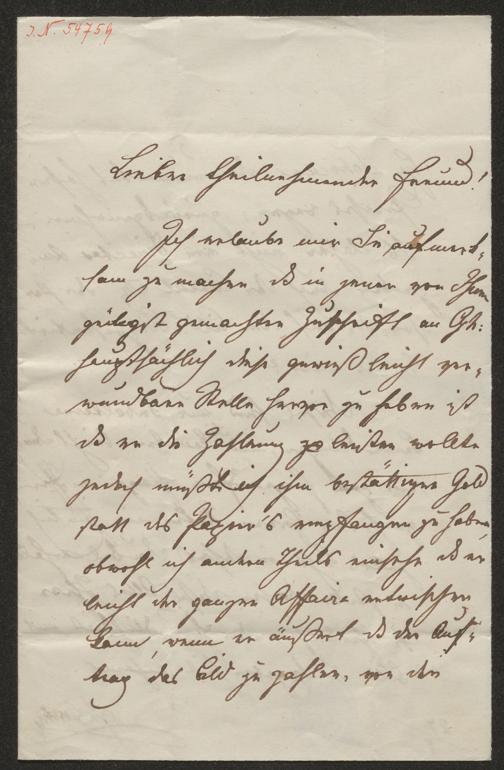 J. N. 54759
Lieber theilnehmender Freund!
Ich erlaube mir Sie aufmerk-
sam zu machen dß in jener von Ihnen
gütigst gemachten Zuschrift an Gh:
hauptsächlich diese gewiß leicht ver-
wundbare Stelle hervor zu heben ist
dß er die Zahlung zu leisten wollte
jedoch müßte ich ihm bestättigen Geld
statt des Papier's empfangen zu haben,
obwohl ich andern Theils einsehe dß er
leicht der ganzen Affaire entwischen
kann, wenn er äußert dß der Auf-
trag das Bild zu zahlen, von den